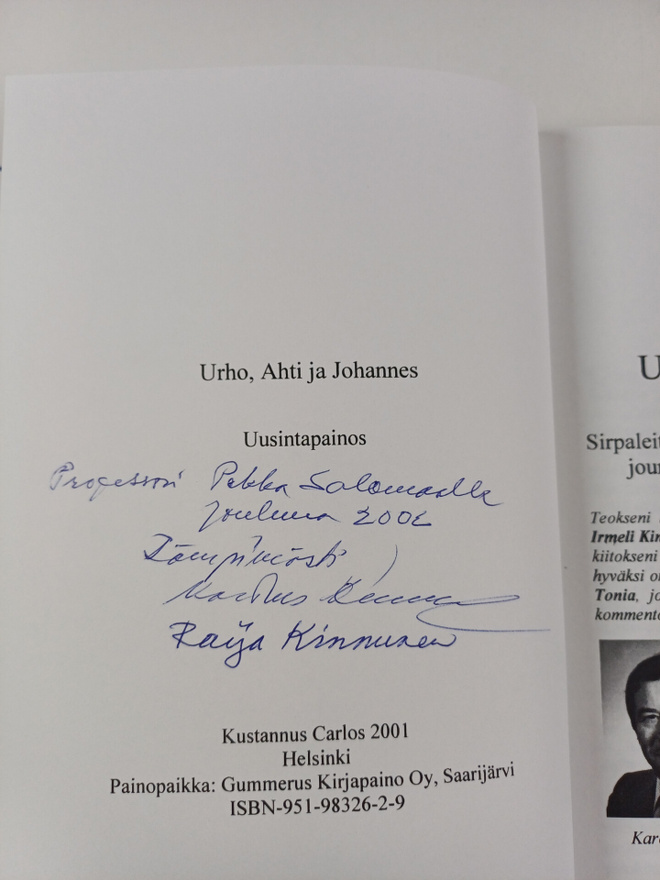 Urho, Ahti ja Johannes
Uusintapainos
Professori Pekka Salomaalle
Jouluna 2002
Lämpimästi
Markus
Raija Kinnunen
Kustannus Carlos 2001
Helsinki
Painopaikka: Gummerus Kirjapaino Oy, Saarijärvi
ISBN-951-98326-2-9
U
Sirpaleit
jour
Teokseni
Irmeli Kin
kiitokseni
hyväksi o
Tonia, jo
kommento
Kar